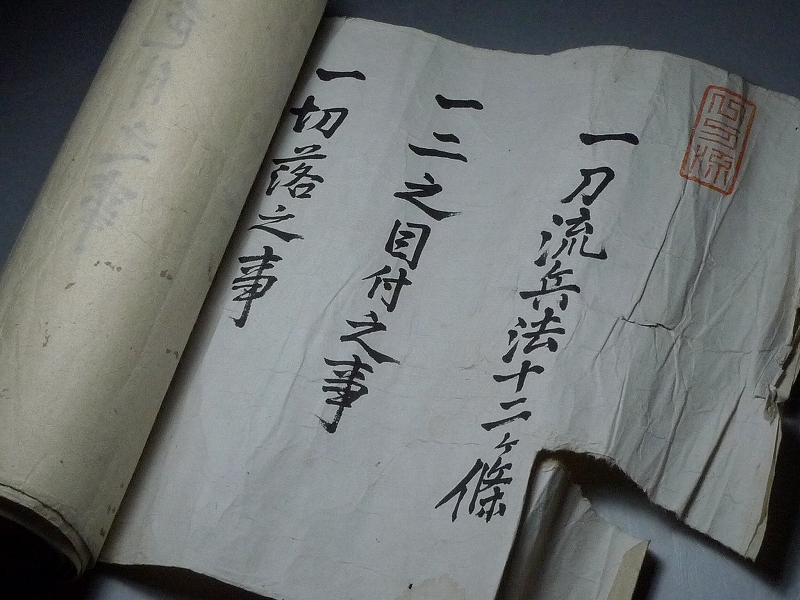 一刀流兵法十二ヶ條
一二之目付之事
一切落之事